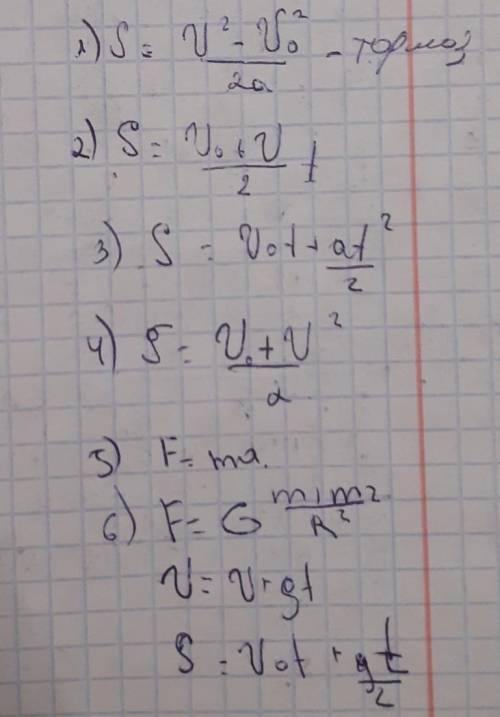 1) S = (V² - V₀²)/2a - тормоз
2) S = (V₀ + V)/2 t
3) S = V₀t + at²/2
4) S = (V₀ + V²)/a
5) F = ma.
6) F = G m1m2/R²
V = V + gt
S = V₀t + gt/2